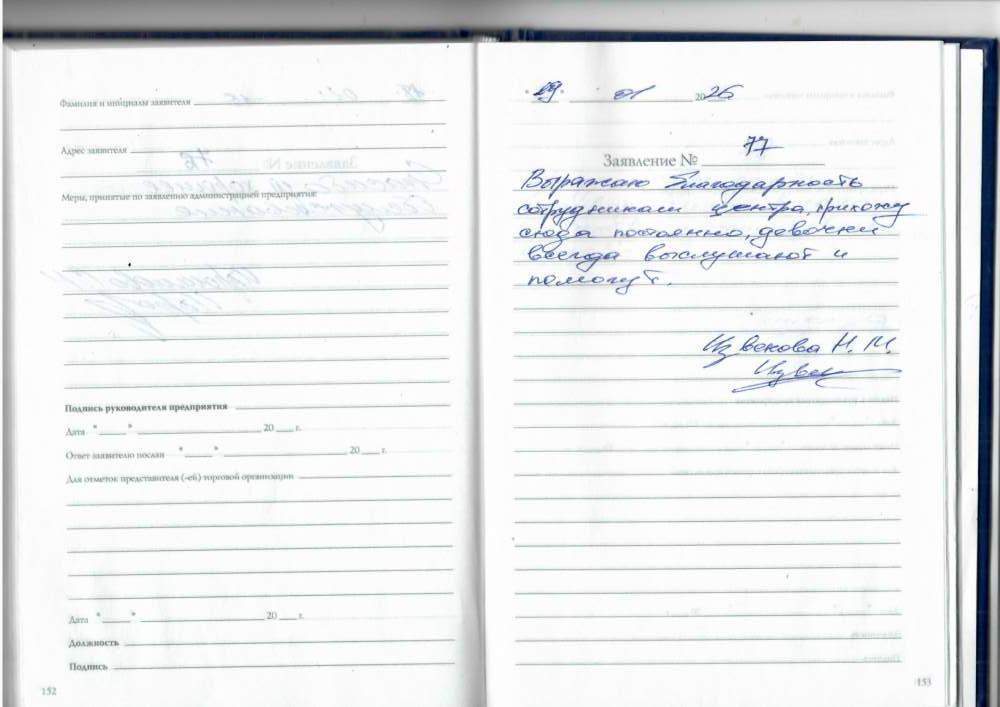 Фамилия и инициалы заявителя
Адрес заявителя
Меры, принятые по заявлению администрацией предприятия:
Подпись руководителя предприятия
Дата "___" ___ 20 ___ г.
Ответ заявителю послан "___" ___ 20 ___ г.
Для отметок представителя (-ей) торговой организации
Дата "___" ___ 20 ___ г.
Должность
Подпись
152
"29" 01 2026
Заявление № 77
Выражаю благодарность
сотрудникам центра, прихожу
сюда постоянно, девочки
всегда выслушают и
помогут.
Извекова Н. М.
153